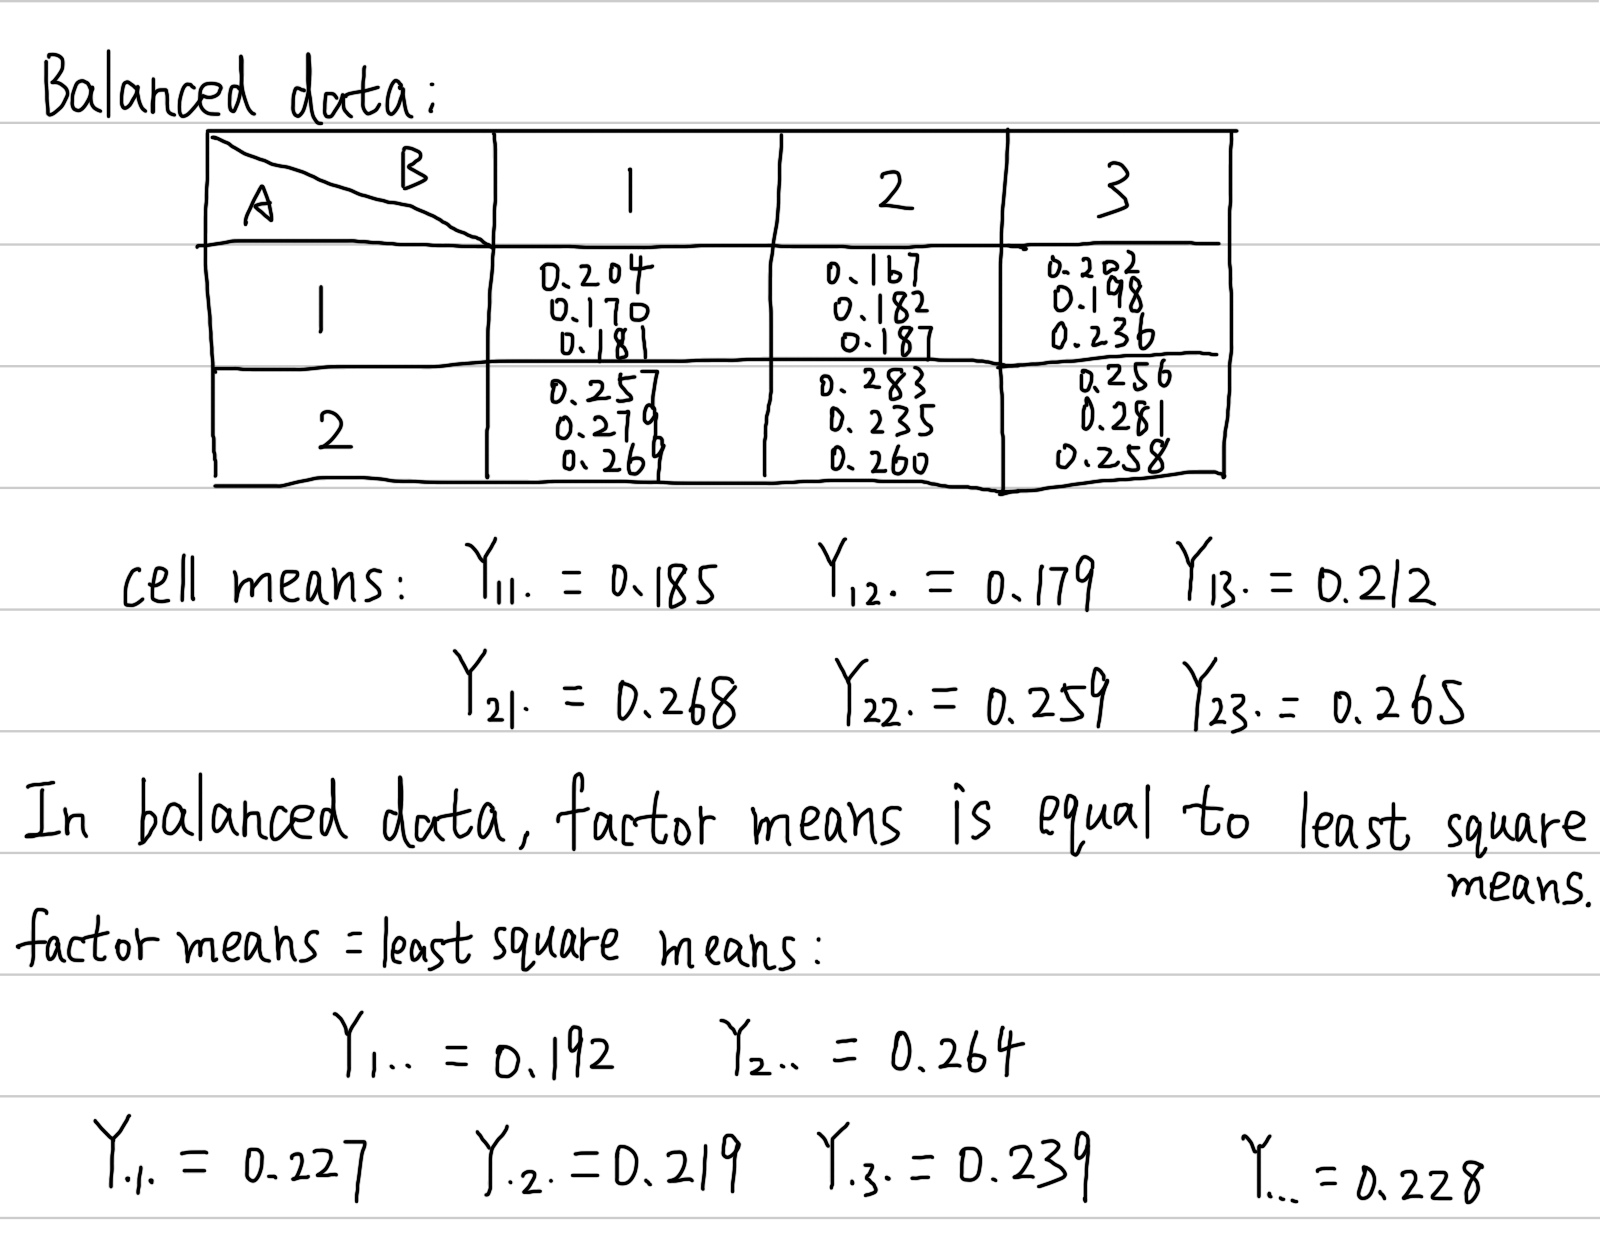 Balanced data:
B
A
1 2 3
1
0.204 0.167 0.202
0.170 0.182 0.198
0.181 0.187 0.236
2
0.257 0.283 0.256
0.279 0.235 0.281
0.269 0.260 0.258
cell means: Y₁₁. = 0.185 Y₁₂. = 0.179 Y₁₃. = 0.212
Y₂₁. = 0.268 Y₂₂. = 0.259 Y₂₃. = 0.265
In balanced data, factor means is equal to least square
means.
factor means = least square means:
Y₁.. = 0.192 Y₂.. = 0.264
Y.₁. = 0.227 Y.₂. = 0.219 Y.₃. = 0.239 Y... = 0.228